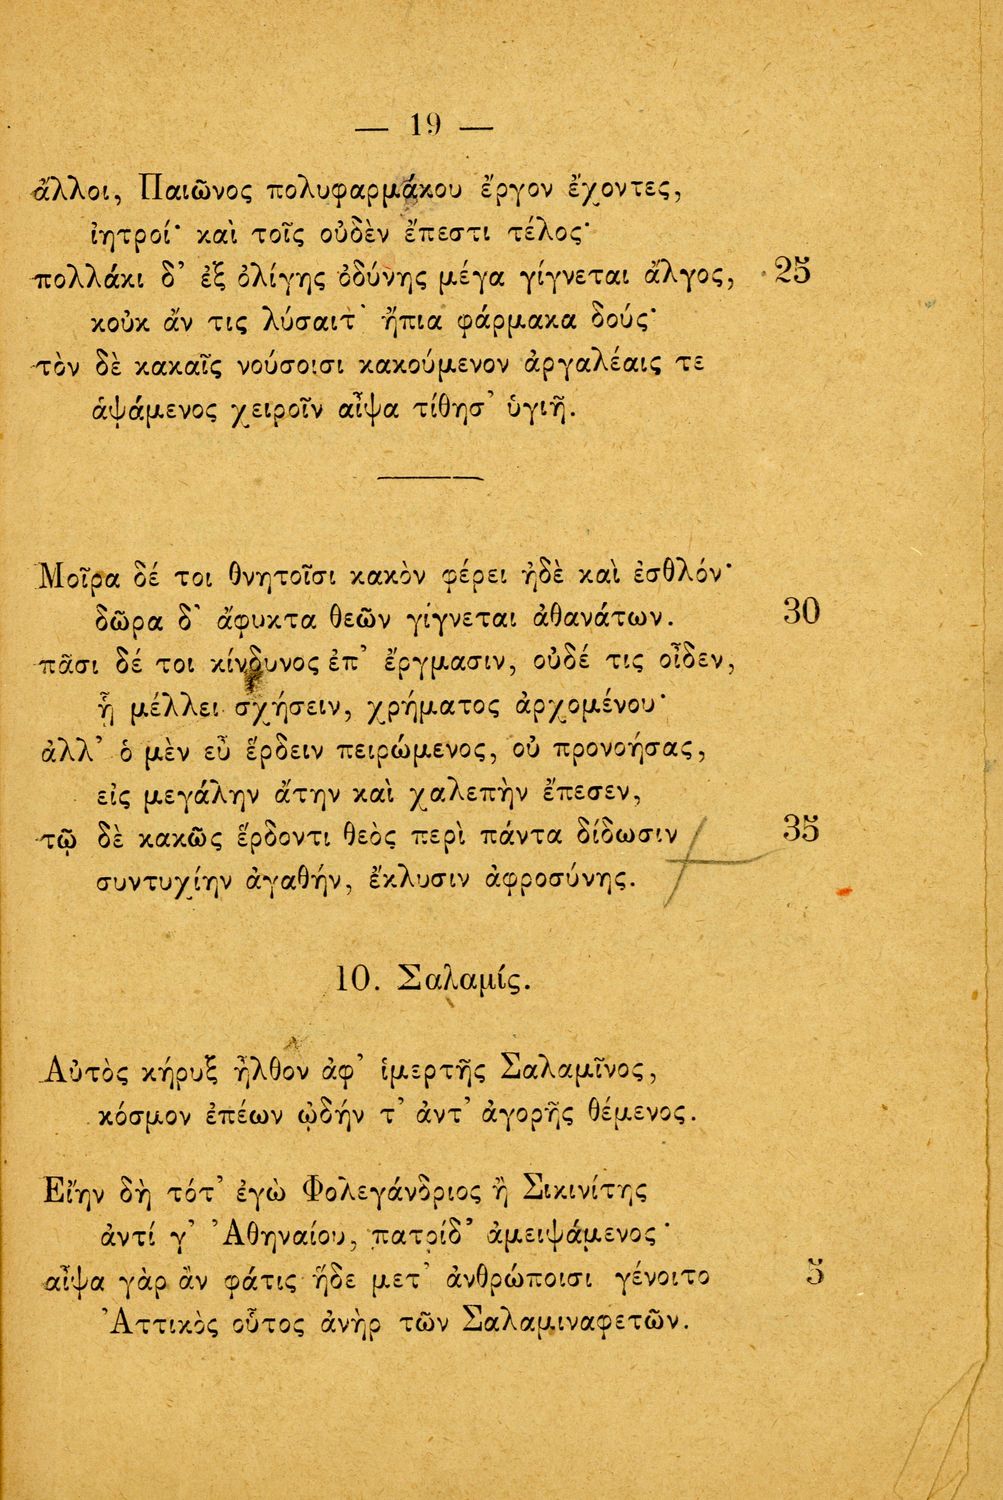 — 19 —
ἄλλοι, Παιῶνος πολυφαρμάκου ἔργον ἔχοντες,
ἰητροί· καὶ τοῖς οὐδὲν ἔπεστι τέλος·
πολλάκι δ’ ἐξ ὀλίγης ὀδύνης μέγα γίγνεται ἄλγος, 25
κοὐκ ἄν τις λύσαιτ’ ἤπια φάρμακα δούς·
τὸν δὲ κακαῖς νούσοισι κακούμενον ἀργαλέαις τε
ἁψάμενος χειροῖν αἶψα τίθησ’ ὑγιῆ.
Μοῖρα δέ τοι θνητοῖσι κακὸν φέρει ἠδὲ καὶ ἐσθλόν·
δῶρα δ’ ἄφυκτα θεῶν γίγνεται ἀθανάτων. 30
πᾶσι δέ τοι κίνδυνος ἐπ’ ἔργμασιν, οὐδέ τις οἶδεν,
ᾗ μέλλει σχήσειν, χρήματος ἀρχομένου·
ἀλλ’ ὁ μὲν εὖ ἔρδειν πειρώμενος, οὐ προνοήσας,
εἰς μεγάλην ἄτην καὶ χαλεπὴν ἔπεσεν,
τῷ δὲ κακῶς ἔρδοντι θεὸς περὶ πάντα δίδωσιν 35
συντυχίην ἀγαθήν, ἔκλυσιν ἀφροσύνης.
10. Σαλαμίς.
Αὐτὸς κήρυξ ἦλθον ἀφ’ ἱμερτῆς Σαλαμῖνος,
κόσμον ἐπέων ᾠδήν τ’ ἀντ’ ἀγορῆς θέμενος.
Εἴην δὴ τότ’ ἐγὼ Φολεγάνδριος ἢ Σικινίτης
ἀντί γ’ Ἀθηναίου, πατρίδ’ ἀμειψάμενος·
αἶψα γὰρ ἂν φάτις ἥδε μετ’ ἀνθρώποισι γένοιτο 5
Ἀττικὸς οὗτος ἀνὴρ τῶν Σαλαμιναφετῶν.